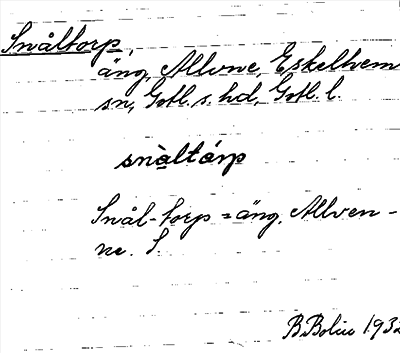 Snåltorp,
äng, Allvne, Eskelhem
sn, Gotl. s. hd, Gotl. l.
snàltórp
Snål-torp = äng. Allven-
ne. S.
B. Bolin 1932